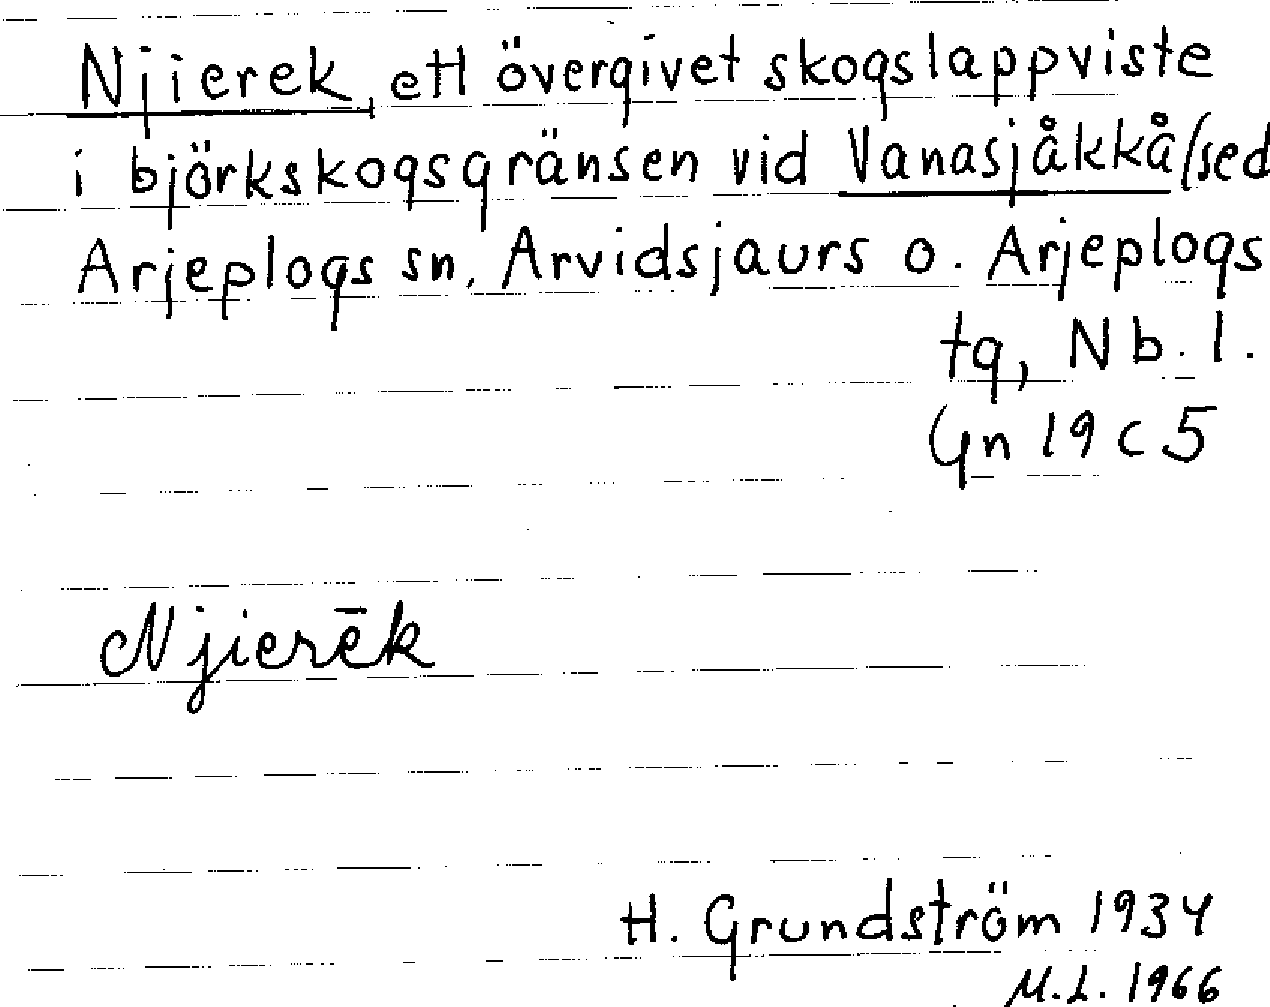 Njierek, ett övergivet skogslappviste
i björkskogsgränsen vid Vanasjåkkå/sed
Arjeplogs sn, Arvidsjaurs o. Arjeplogs
tg, Nb. l.
Gn 19 c 5
Njierēk
H. Grundström 1934
M.L. 1966